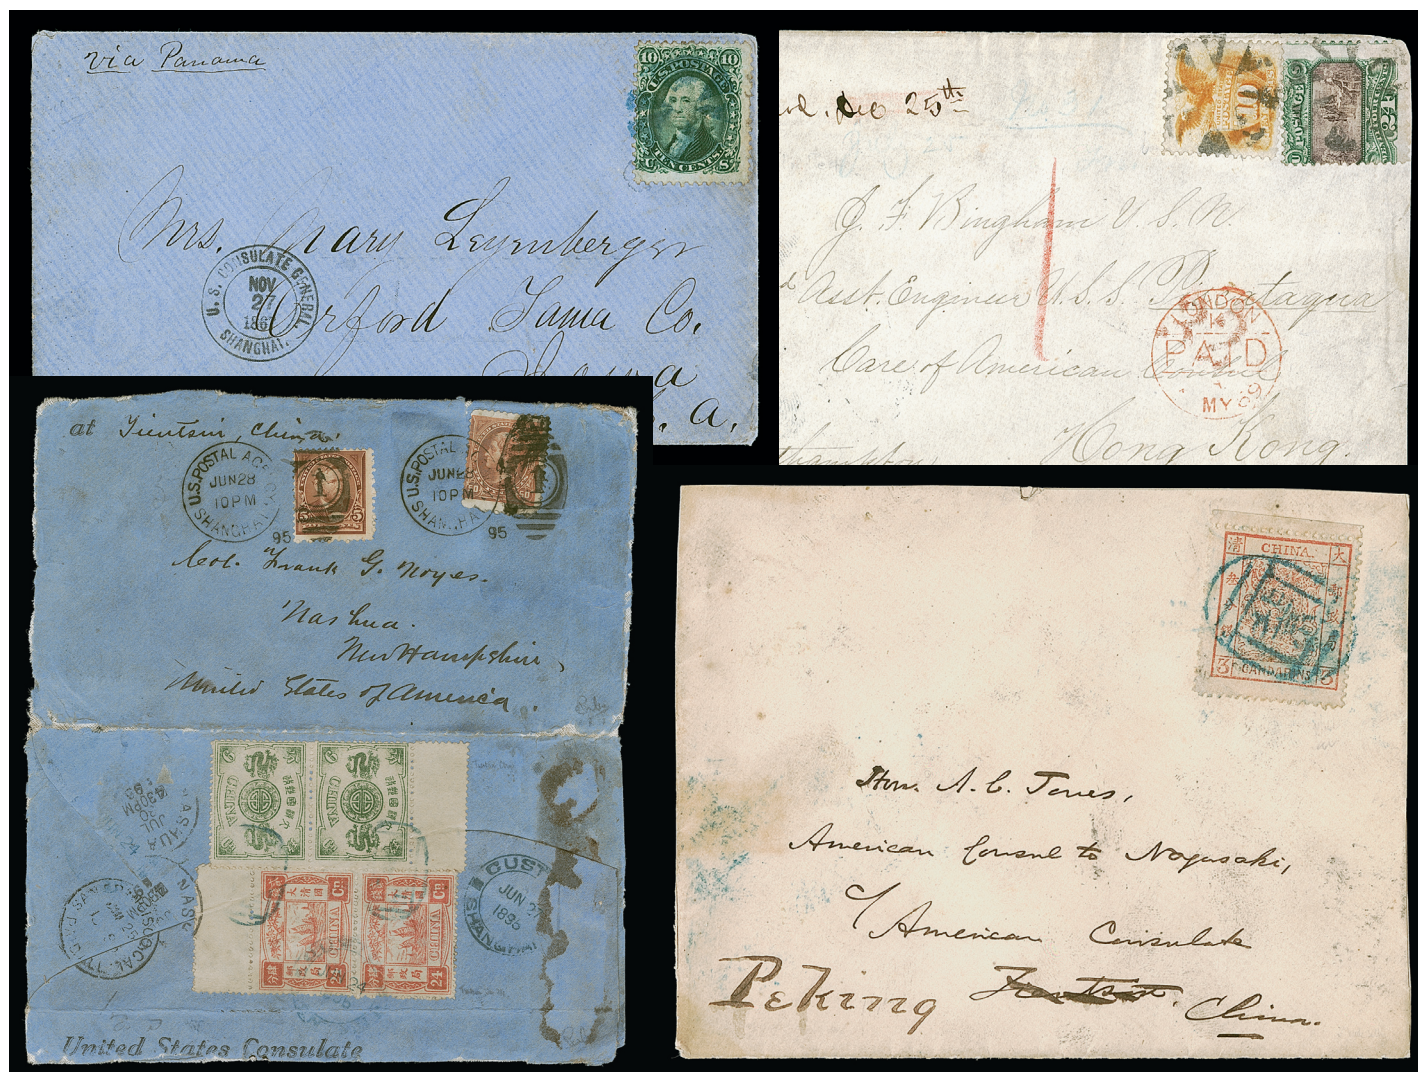 via Panama
10 10
U.S. POSTAGE
TEN CENTS
U S
Mrs. Mary Leyenberger
Orford Tama Co.
Iowa
U. S. CONSULATE GENERAL
NOV
27
186
SHANGHAI.
Dec 25th
10
24
J. F. Bingham U. S. N.
Asst. Engineer U.S.S. Piscataqua
Care of American Consul
Hong Kong.
LONDON
PAID
MY
69
at Tientsin, China.
U.S. POSTAL AGCY
JUN 28
10 PM
SHANGHAI
95
U.S. POSTAL AG
JUN 28
10 PM
SHANGHA
95
1
1
5
Col. Frank G. Noyes.
Nashua.
New Hampshire,
United States of America.
CHINA
CHINA
大清國郵政局
24 Cn
CHINA
大清國郵政局
24 Cn
CHINA
NASHUA
JUL
30
430PM
CUST
JUN 2
SHANGHAI
United States Consulate
清 CHINA. 大
3 CANDARINS 3
Hon. A. C. Jones,
American Consul to Nagasaki,
c/ American Consulate
Peking Tientsin,
China.